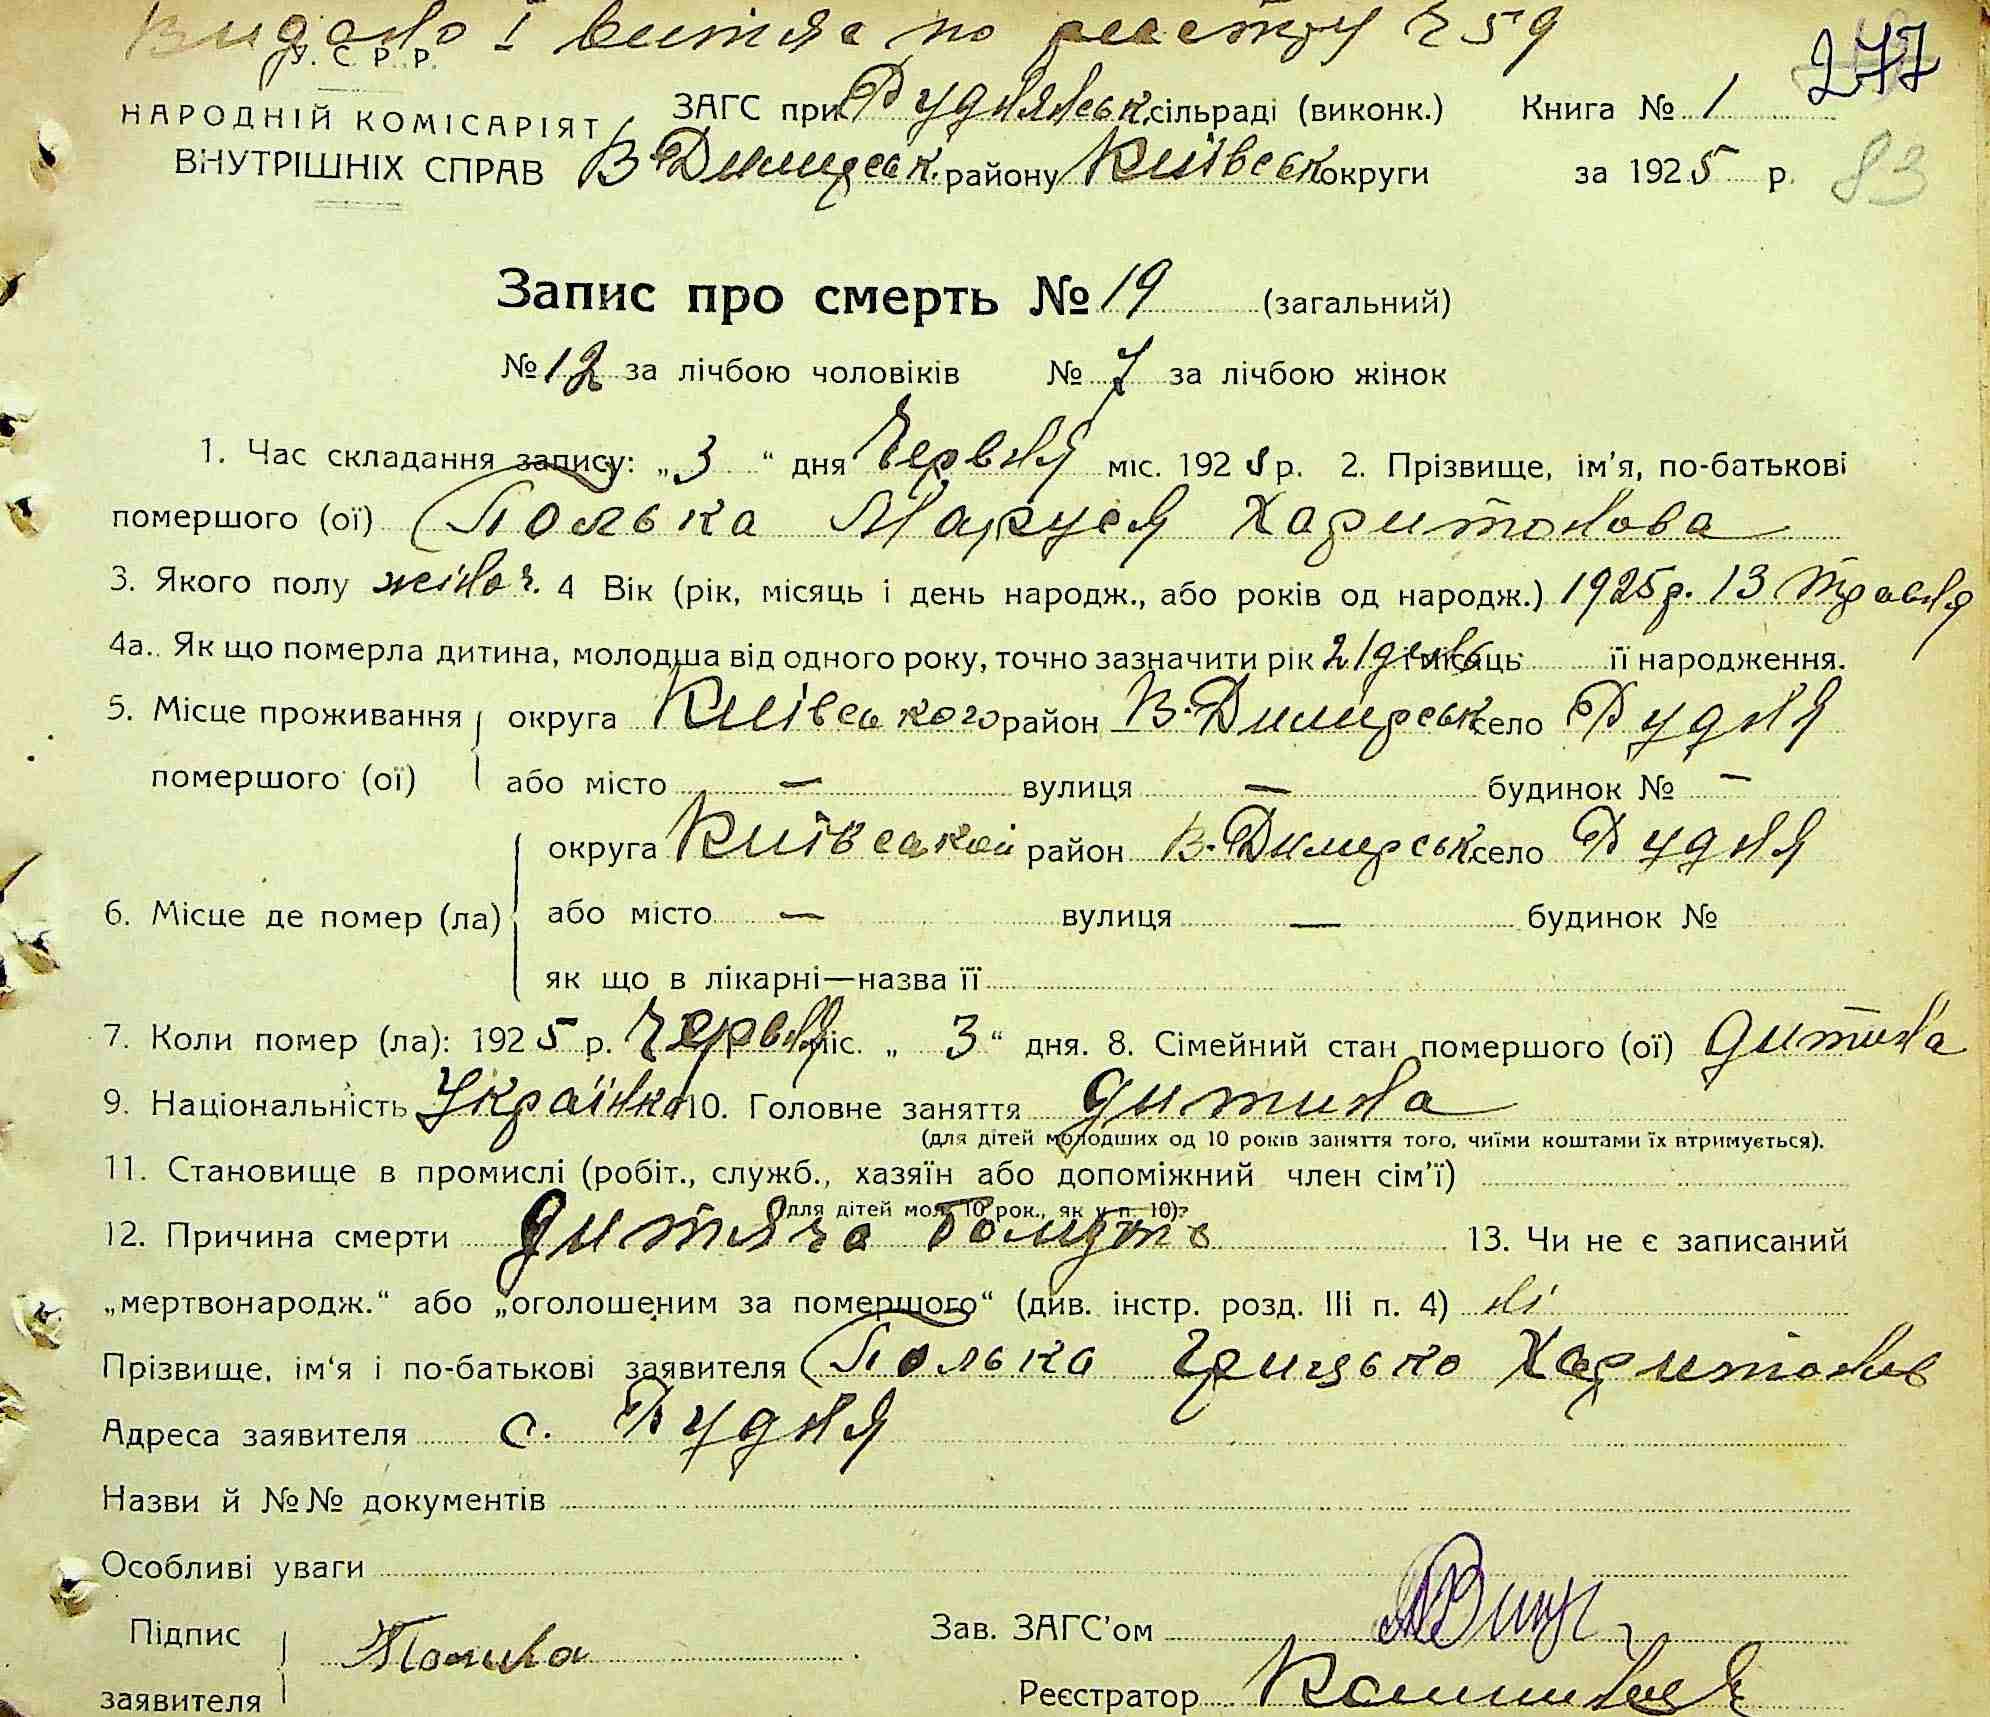 Видано 1 витяг по реєстру № 59
У. С. Р. Р.
277
НАРОДНІЙ КОМІСАРІЯТ
ВНУТРІШНІХ СПРАВ
ЗАГС при Руднянськ. сільраді (виконк.) Книга № 1
В-Димерськ. району Київськ округи за 1925 р. 83
Запис про смерть № 19 (загальний)
№ 12 за лічбою чоловіків № 7 за лічбою жінок
1. Час складання запису: „3“ дня Червня міс. 1925 р. 2. Прізвище, ім'я, по-батькові
помершого (ої) Полька Маруся Харитонова
3. Якого полу жіноч. 4 Вік (рік, місяць і день народж., або років од народж.) 1925 р. 13 травня
4а. Як що померла дитина, молодша від одного року, точно зазначити рік 21 день і місяць її народження.
5. Місце проживання округа Київського район В-Димерськ село Рудня
помершого (ої) або місто — вулиця — будинок № —
округа Київської район В-Димерськ село Рудня
6. Місце де помер (ла) або місто — вулиця — будинок №
як що в лікарні—назва її
7. Коли помер (ла): 1925 р. Червня міс. „3“ дня. 8. Сімейний стан помершого (ої) дитина
9. Національність Українка 10. Головне заняття дитина
(для дітей молодших од 10 років заняття того, чиїми коштами їх втримується).
11. Становище в промислі (робіт., служб., хазяїн або допоміжний член сім'ї)
(для дітей мол. 10 рок., як у п. 10)?
12. Причина смерти дитяча 13. Чи не є записаний
„мертвонародж.“ або „оголошеним за помершого“ (див. інстр. розд. III п. 4) ні
Прізвище, ім'я і по-батькові заявителя Полька Грицько Харитонов
Адреса заявителя с. Рудня
Назви й №№ документів
Особливі уваги
Підпис
заявителя
Зав. ЗАГС'ом
Реєстратор